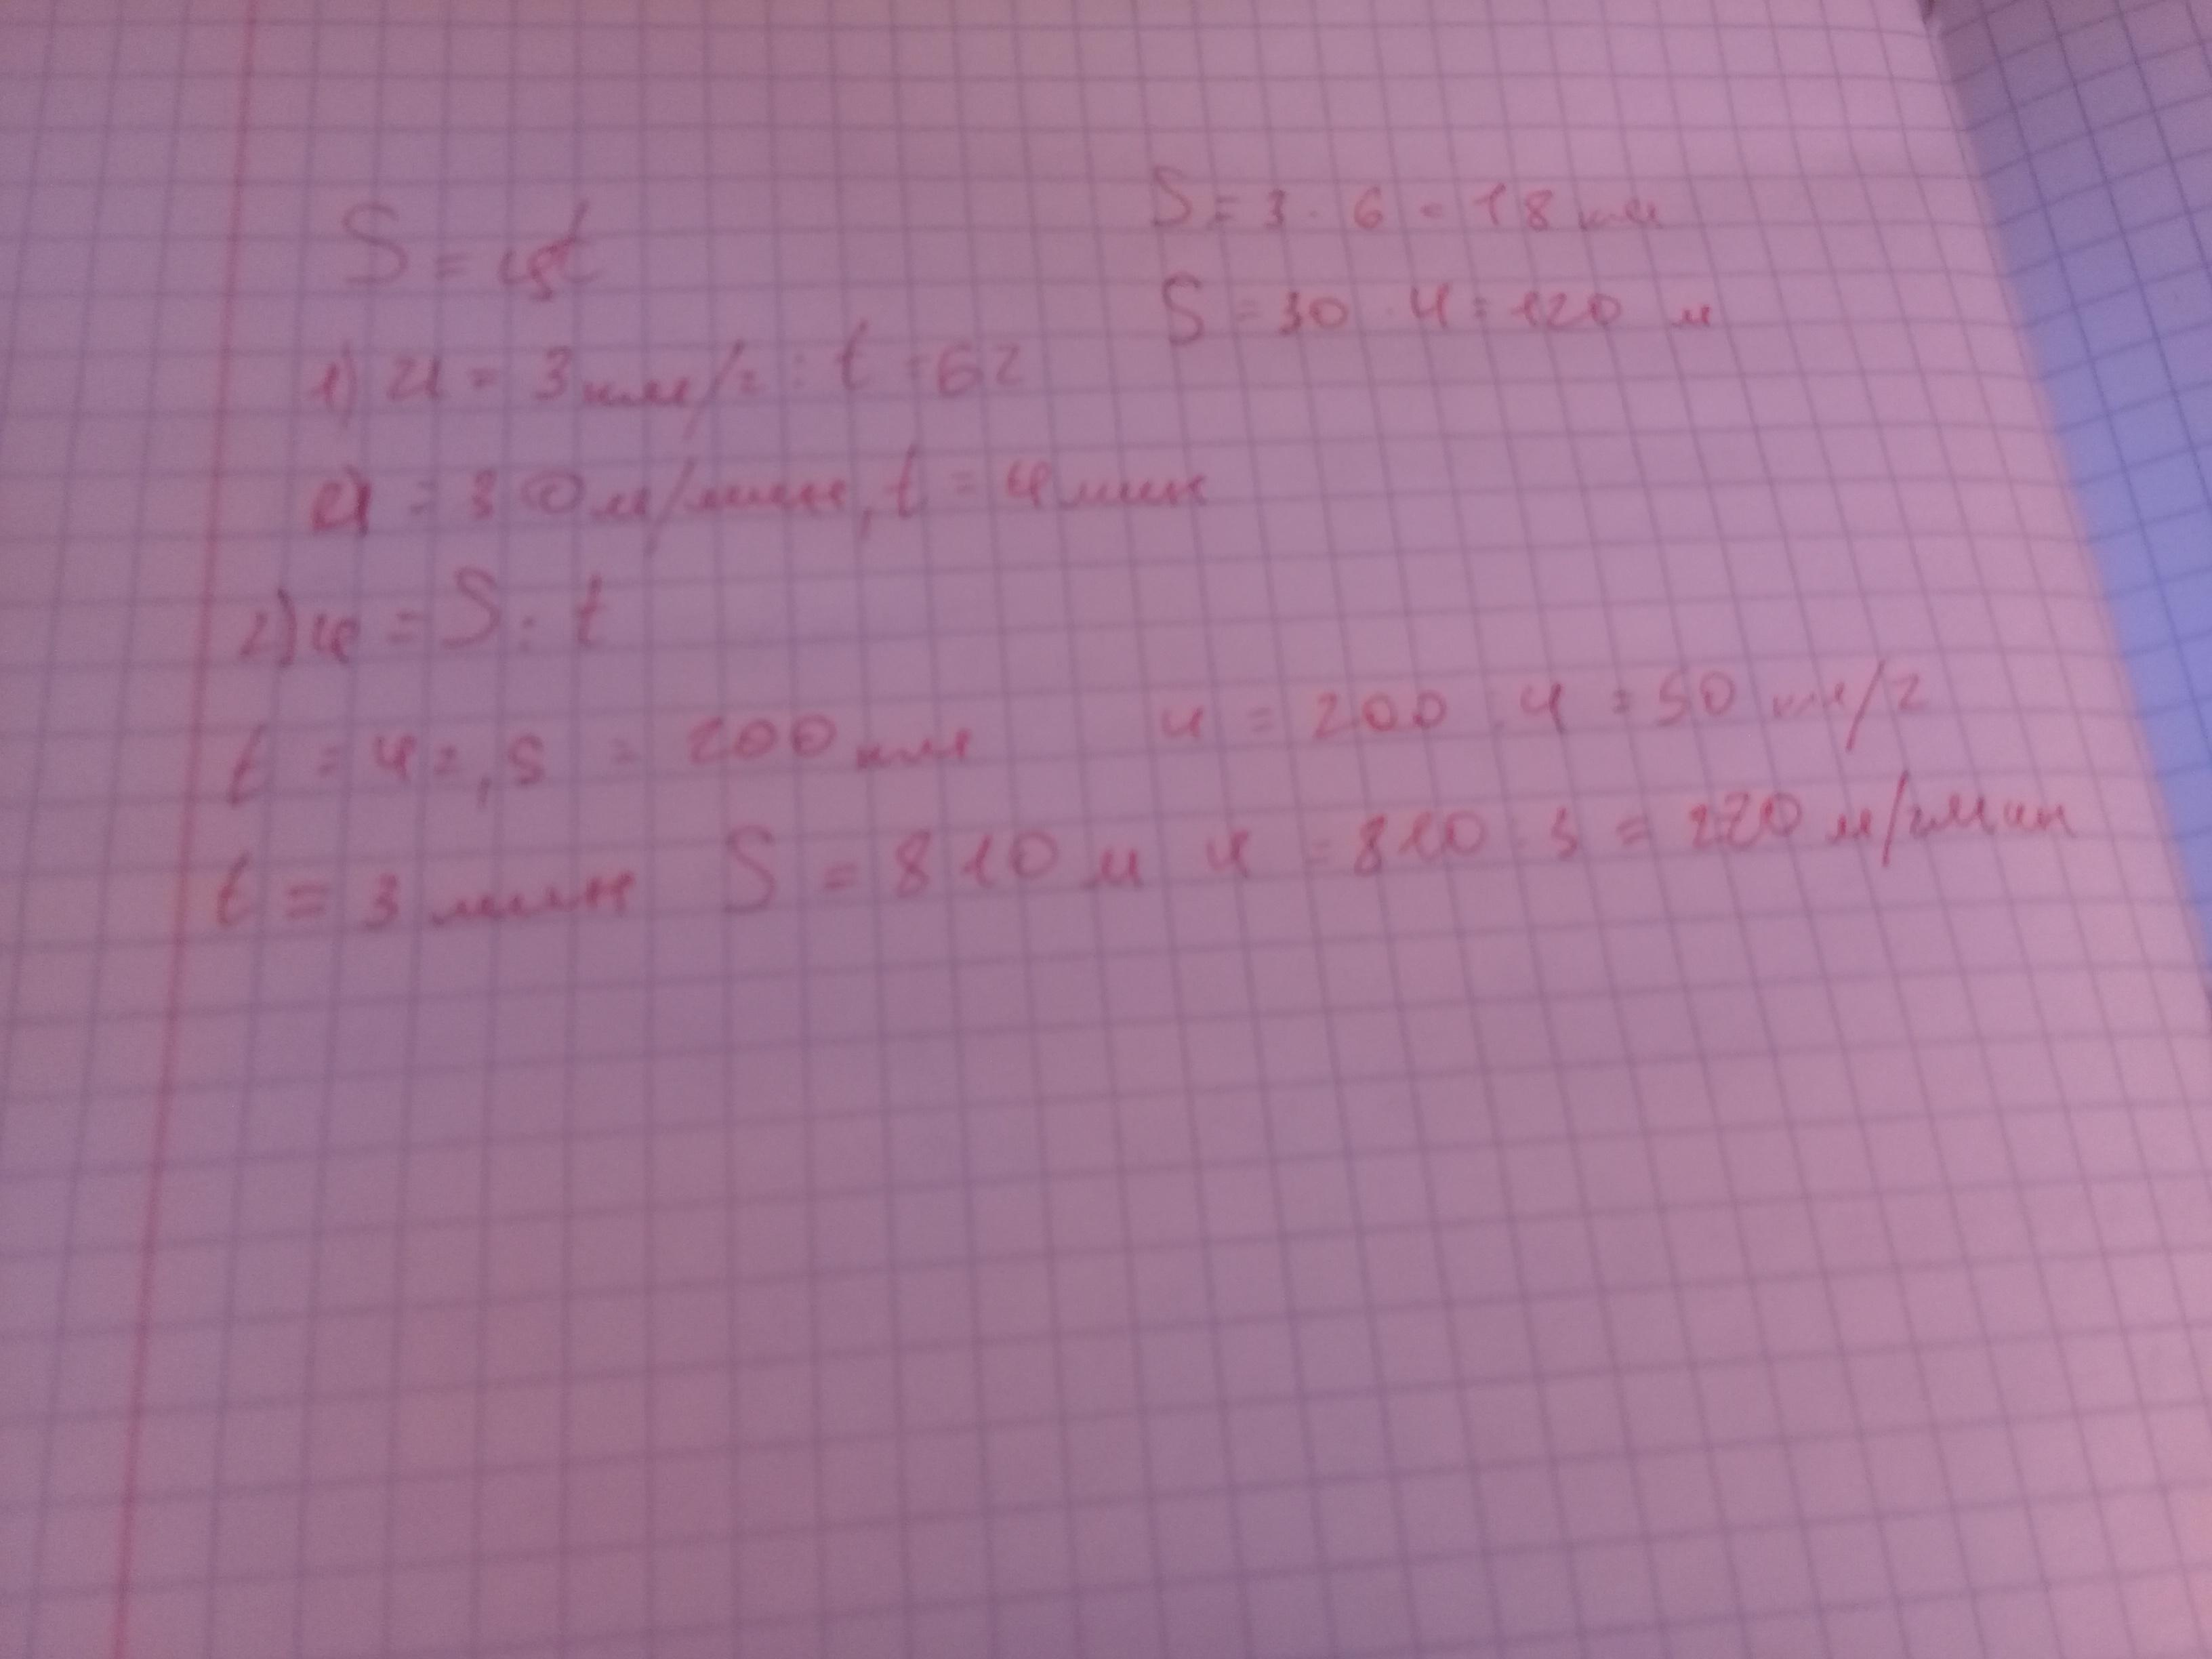 S = υt
S = 3 · 6 = 18 км
S = 30 · 4 = 120 м
1) υ = 3 км/г : t = 6 г
υ = 30 м/мин, t = 4 мин
2) υ = S : t
t = 4 г, S = 200 км υ = 200 : 4 = 50 км/г
t = 3 мин S = 810 м υ = 810 : 3 = 270 м/мин